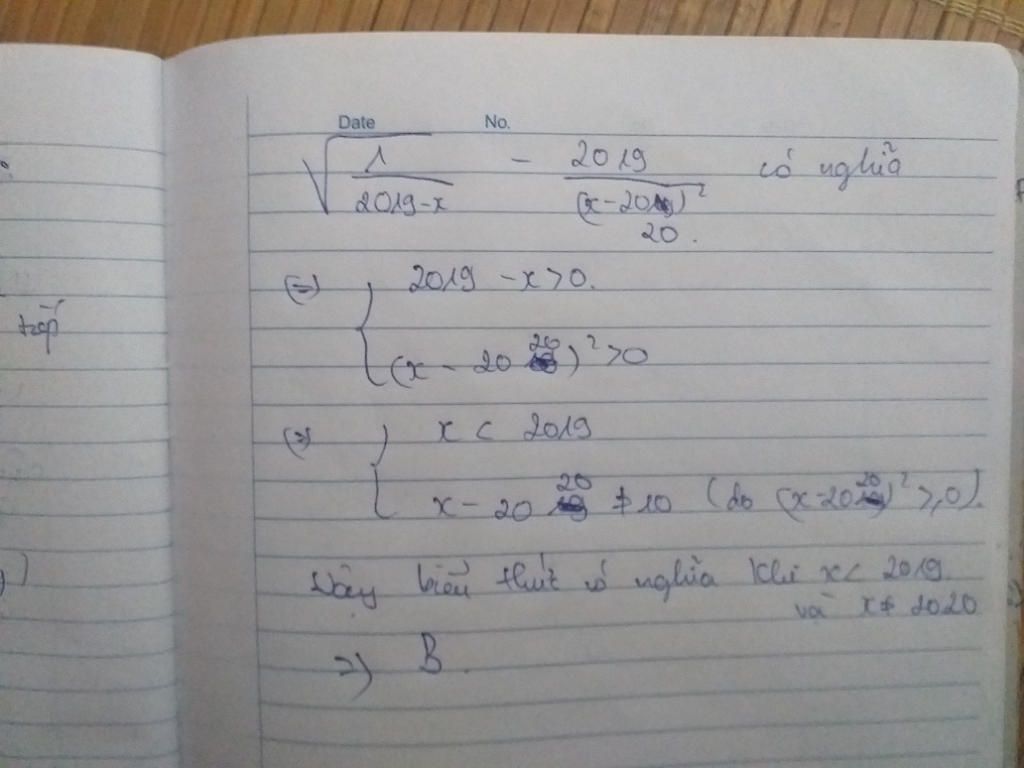 Date No.
√ 1/(2019-x) - 2019/(x-20)² có nghĩa
20.
(=) { 2019 - x > 0.
(x - 2020)² > 0
(=) { x < 2019
x - 2020 ≠ 0 (do (x-2020)² ⩾ 0).
Vậy biểu thức có nghĩa khi x < 2019.
và x ≠ 2020
=) B.
trếp
)